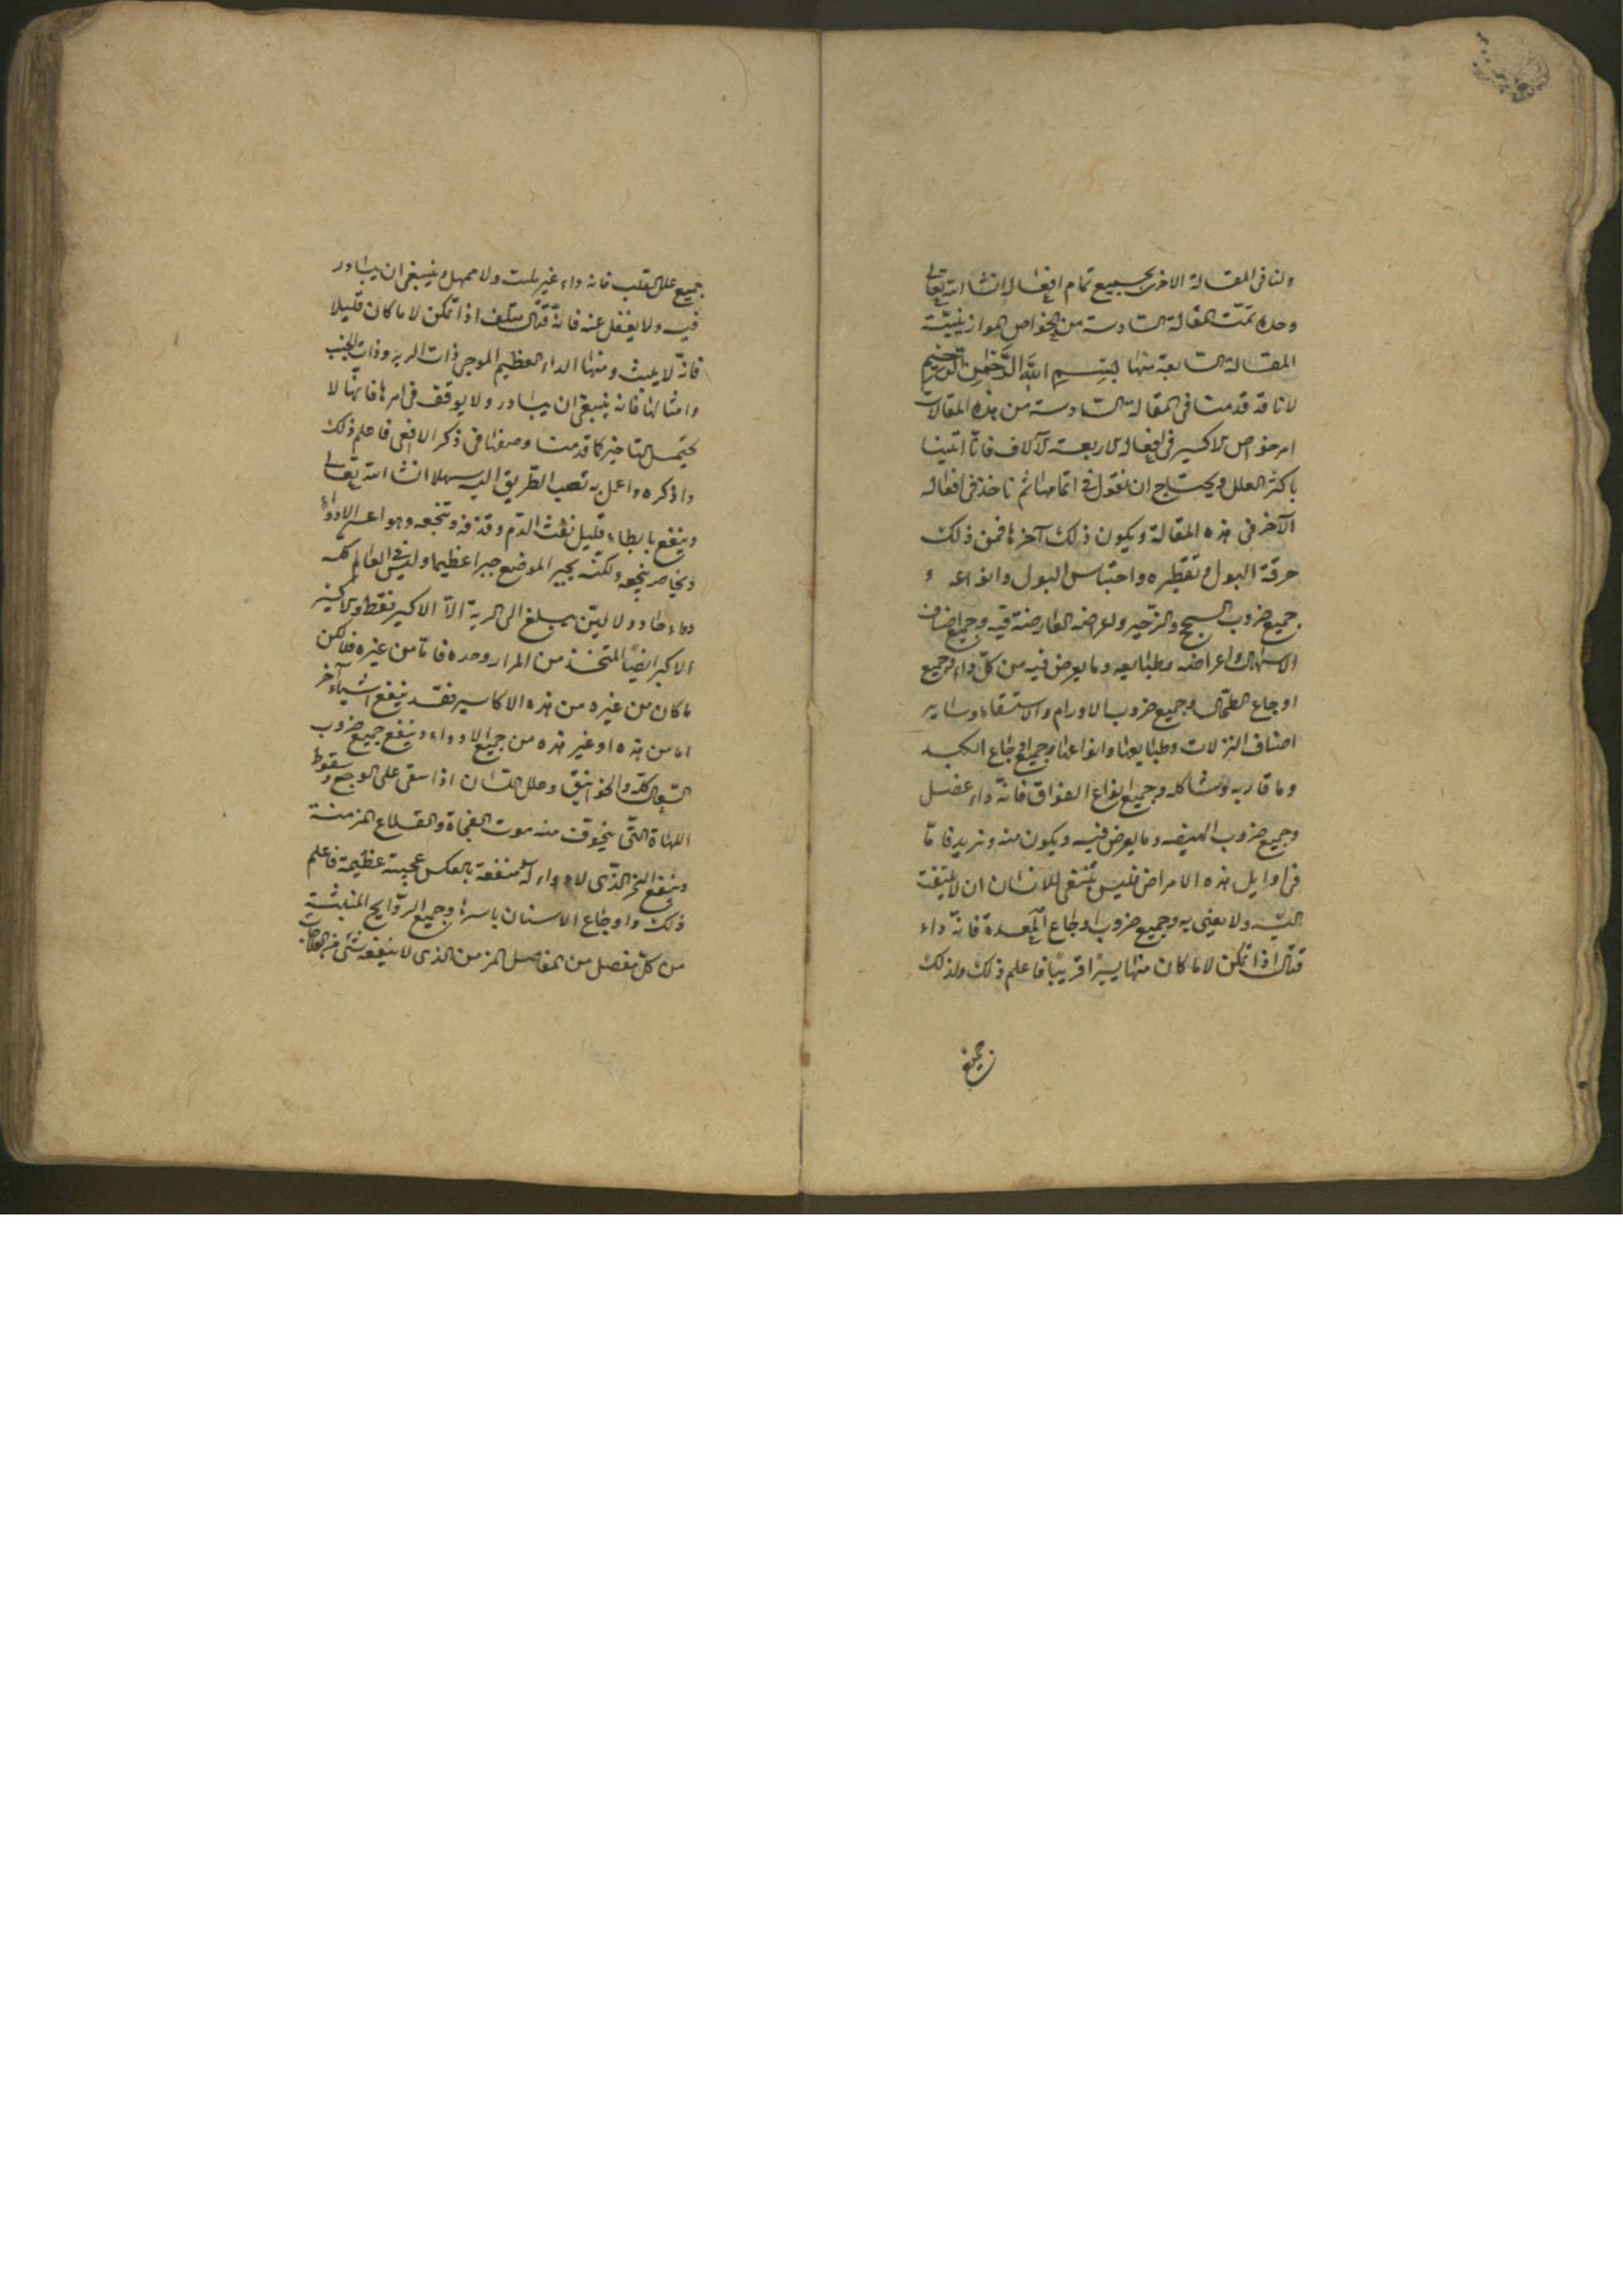 ولنا فى المقالة الاخرى بجميع تمام افعاله انشا الله تعالى
وحده تمّت المقالة السادسة من الخواص الموازينيّة
المقالة السابعة منها بِسْمِ اللهِ الرَّحْمٰنِ الرَّحِيمِ
لانا قد قدمنا فى المقالة السادسة من هذه المقالات
امر خواص الاكسير فى افعال الاربعة الآلاف فانّا اتينا
باكثر العلل ويحتاج ان نقول فى اتمامها ثم ناخذ فى افعاله
الآخر فى هذه المقالة ويكون ذلك آخرها فمن ذلك
حرقة البول وتقطيره واحتباس البول وانواعه و
جميع ضروب السحج والزحير واعراضه العارضة فيه وجميع اصناف
الاسهال واعراضه وطبايعه وما يعرض فيه من كلّ داء وجميع
اوجاع الطحال وجميع ضروب الاورام والاستسقاء وساير
اصناف النزلات وطبايعها وانواعها وجميع اوجاع الكبد
وما قاربه وشاكله وجميع انواع الفواق فانّه داء عضل
وجميع ضروب الهيضه وما يعرض فيه ويكون منه ونريد فامّا
فى اوايل هذه الامراض فليس ينبغى للانسان ان لا يلتفت
اليه ولا يعنى به وجميع ضروب اوجاع المعدة فانّه داء
قتال اذا تمكن لا ما كان منها يسيرًا قريبًا فاعلم ذلك ولذلك
جميع
جميع علل القلب فانه داء غير ملبث ولا ممهل وينبغى ان يبادر
فيه ولا يغفل عنه فانّه قتّال متلف اذا تمكن لا ما كان قليلا
فانّه لا يلبث ومنها الداء العظيم الموجى ذات الريه وذات الجنب
وامثالها فانه ينبغى ان يبادر ولا يوقف فى امرها فانها لا
يحتمل التاخير كما قدمنا وصفها فى ذكر الافعى فاعلم ذلك
واذكره واعمل به تصب الطّريق اليه سهلا انشا الله تعالى
وينفع بابطاء قليل نفث الدّم وقذفه وتنجعه وهو اعسر الادواء
ولكنّه يجبر الموضع جبرا عظيما وليس فى العالم كله
دواء حاد ولا ليّن يبلغ الى الرية الّا الاكسير فقط والاكسير
الاكبر ايضًا المتخذ من المرار وحده فامّا من غيره فلا لكن
ما كان من غيره من هذه الاكاسير فقد ينفع اشياء آخر
اما من هذه او غير هذه من جميع الادواء وينفع جميع ضروب
السّعال كلّه والخوانيق وعلل اللسان اذا سقى على الوجع وسقوط
اللهاة الّتى يتخوف منه موت الفجاة والقلاع المزمنة
وينفع البخر الّذى لا دواء له منفعة بالعكس عجيبة عظيمة فاعلم
ذلك واوجاع الاسنان باسرها وجميع الروايح المنبثة
من كلّ مفصل من المفاصل المزمن الذى لا ينفعه شئ من العلاجات